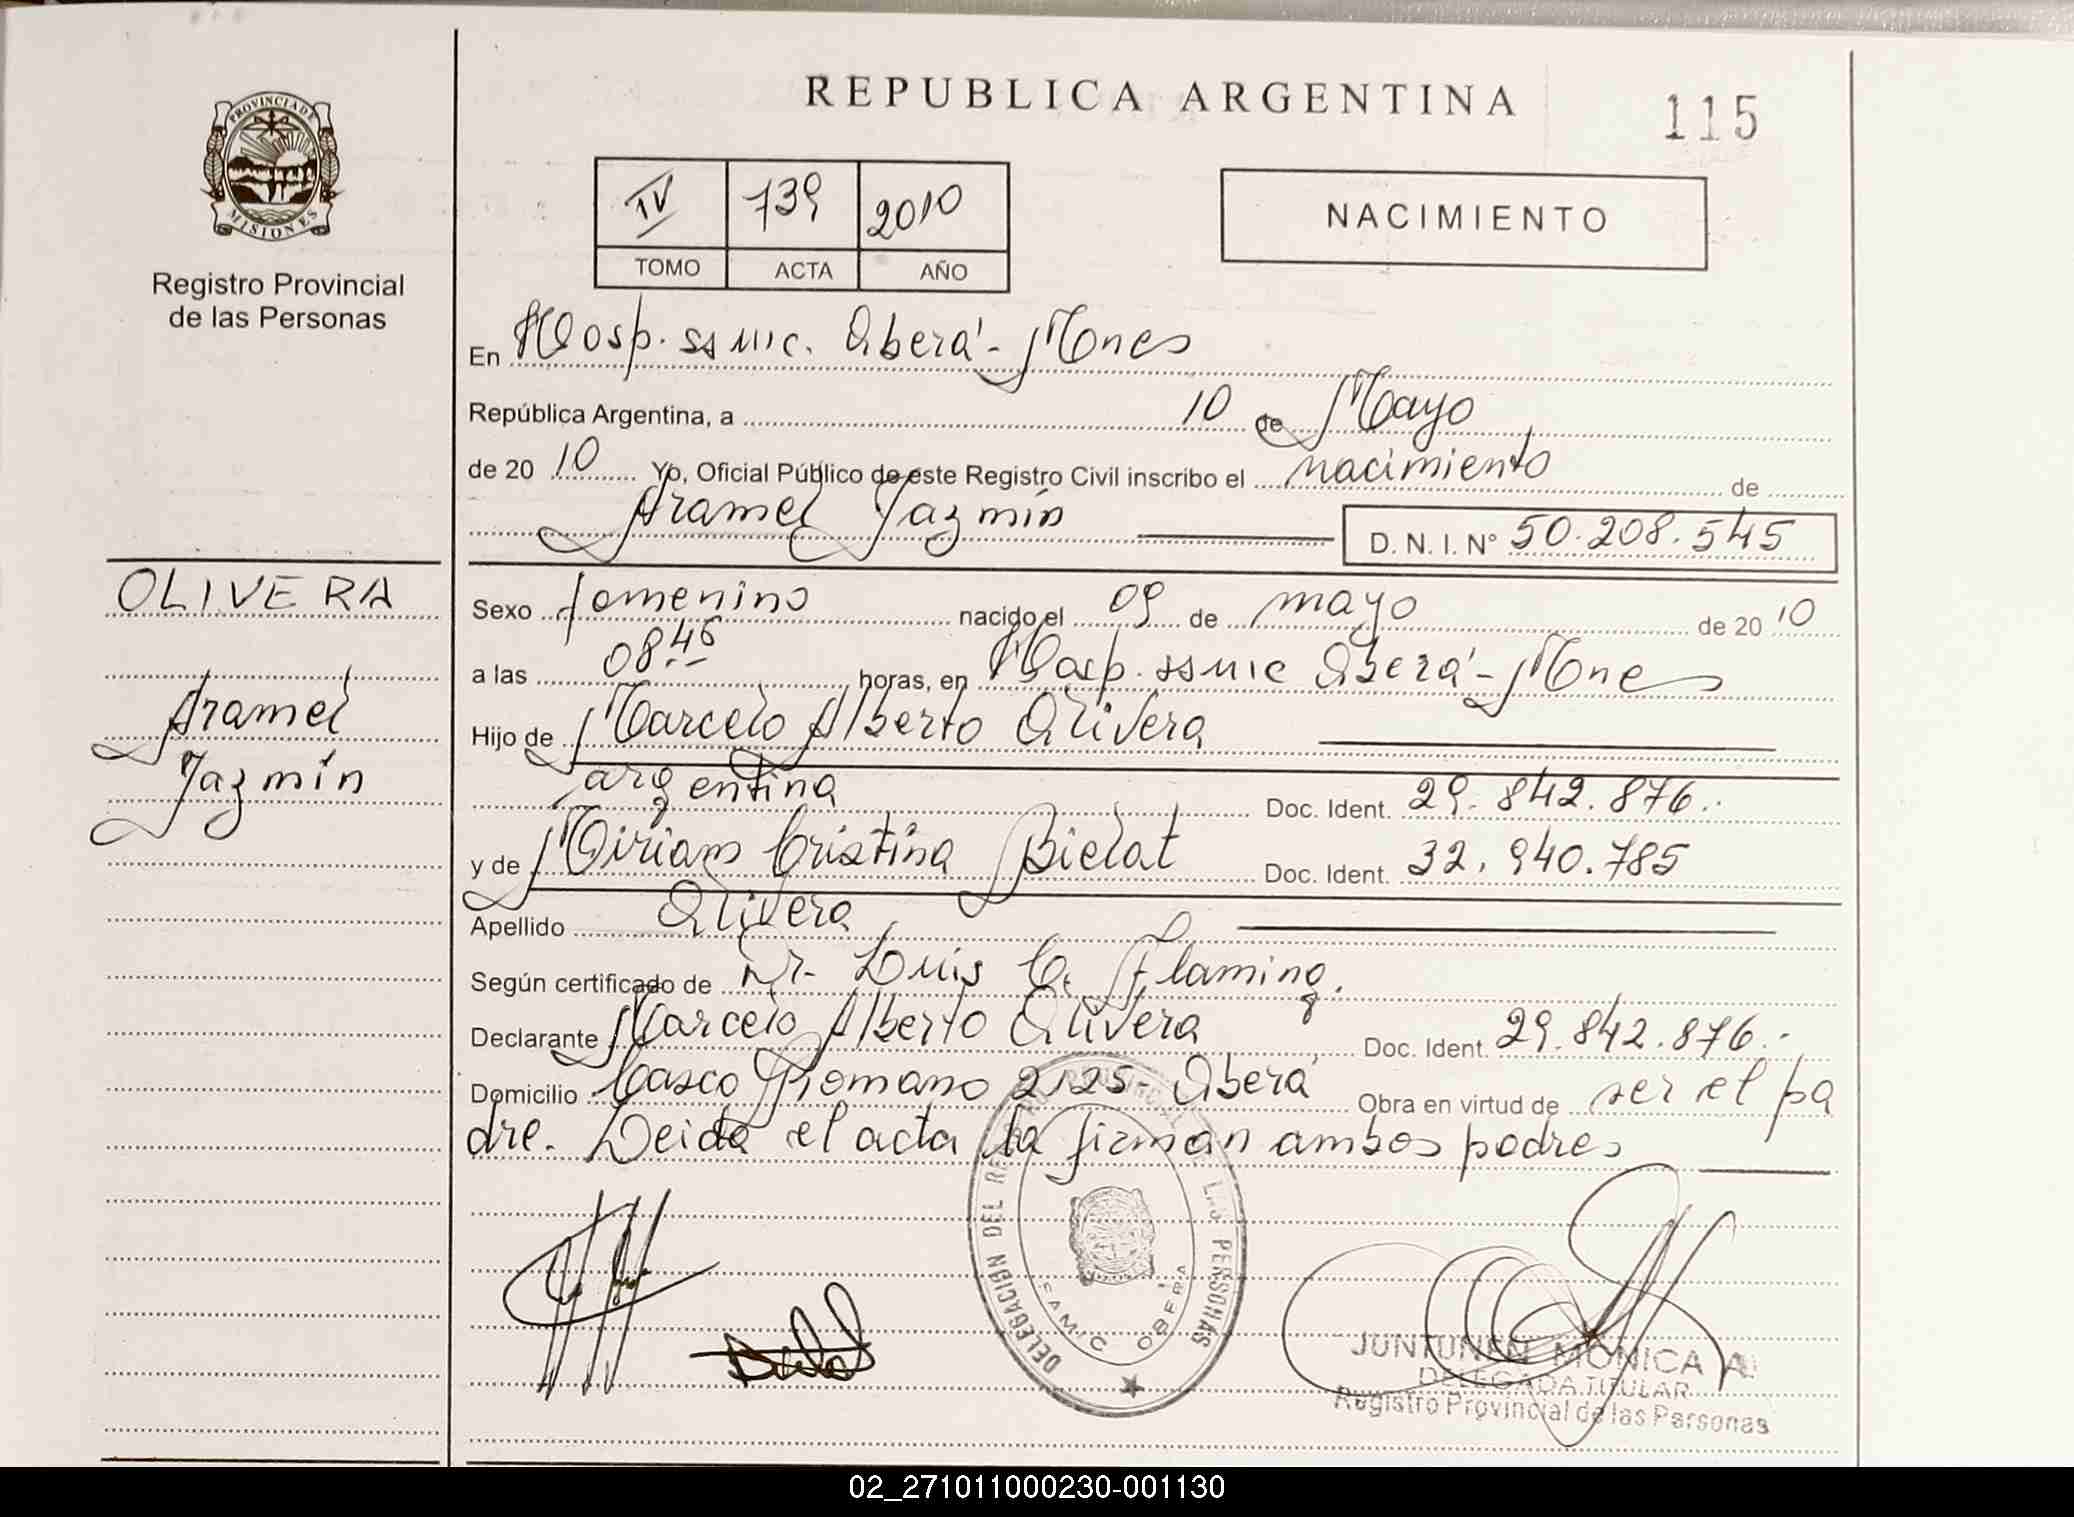 REPUBLICA ARGENTINA
115
PROVINCIA DE
MISIONES
Registro Provincial
de las Personas
IV 739 2010
TOMO ACTA AÑO
NACIMIENTO
En Hosp. ss mic. Oberá - Mnes
República Argentina, a 10 de Mayo
de 20 10 Yo, Oficial Público de este Registro Civil inscribo el nacimiento de
Aramel Jazmín
D. N. I. N° 50.208.545
OLIVERA
Aramel
Jazmín
Sexo femenino nacido el 09 de mayo de 20 10
a las 08.45 horas, en Hosp. ss mic Oberá - Mnes
Hijo de Marcelo Alberto Olivera
argentina Doc. Ident. 29.842.876.-
y de Miriam Cristina Bielat Doc. Ident. 32.940.785
Apellido Olivera
Según certificado de Dr. Luis C. Flaming.
Declarante Marcelo Alberto Olivera Doc. Ident. 29.842.876.-
Domicilio Casco Romano 2125 - Oberá Obra en virtud de ser el pa
dre. Leida el acta la firman ambos padres
DELEGACION DEL REGISTRO PROVINCIAL DE LAS PERSONAS
SAMIC OBERÁ
JUNTUNEN MONICA A.
DELEGADA TITULAR
Registro Provincial de las Personas
02_271011000230-001130